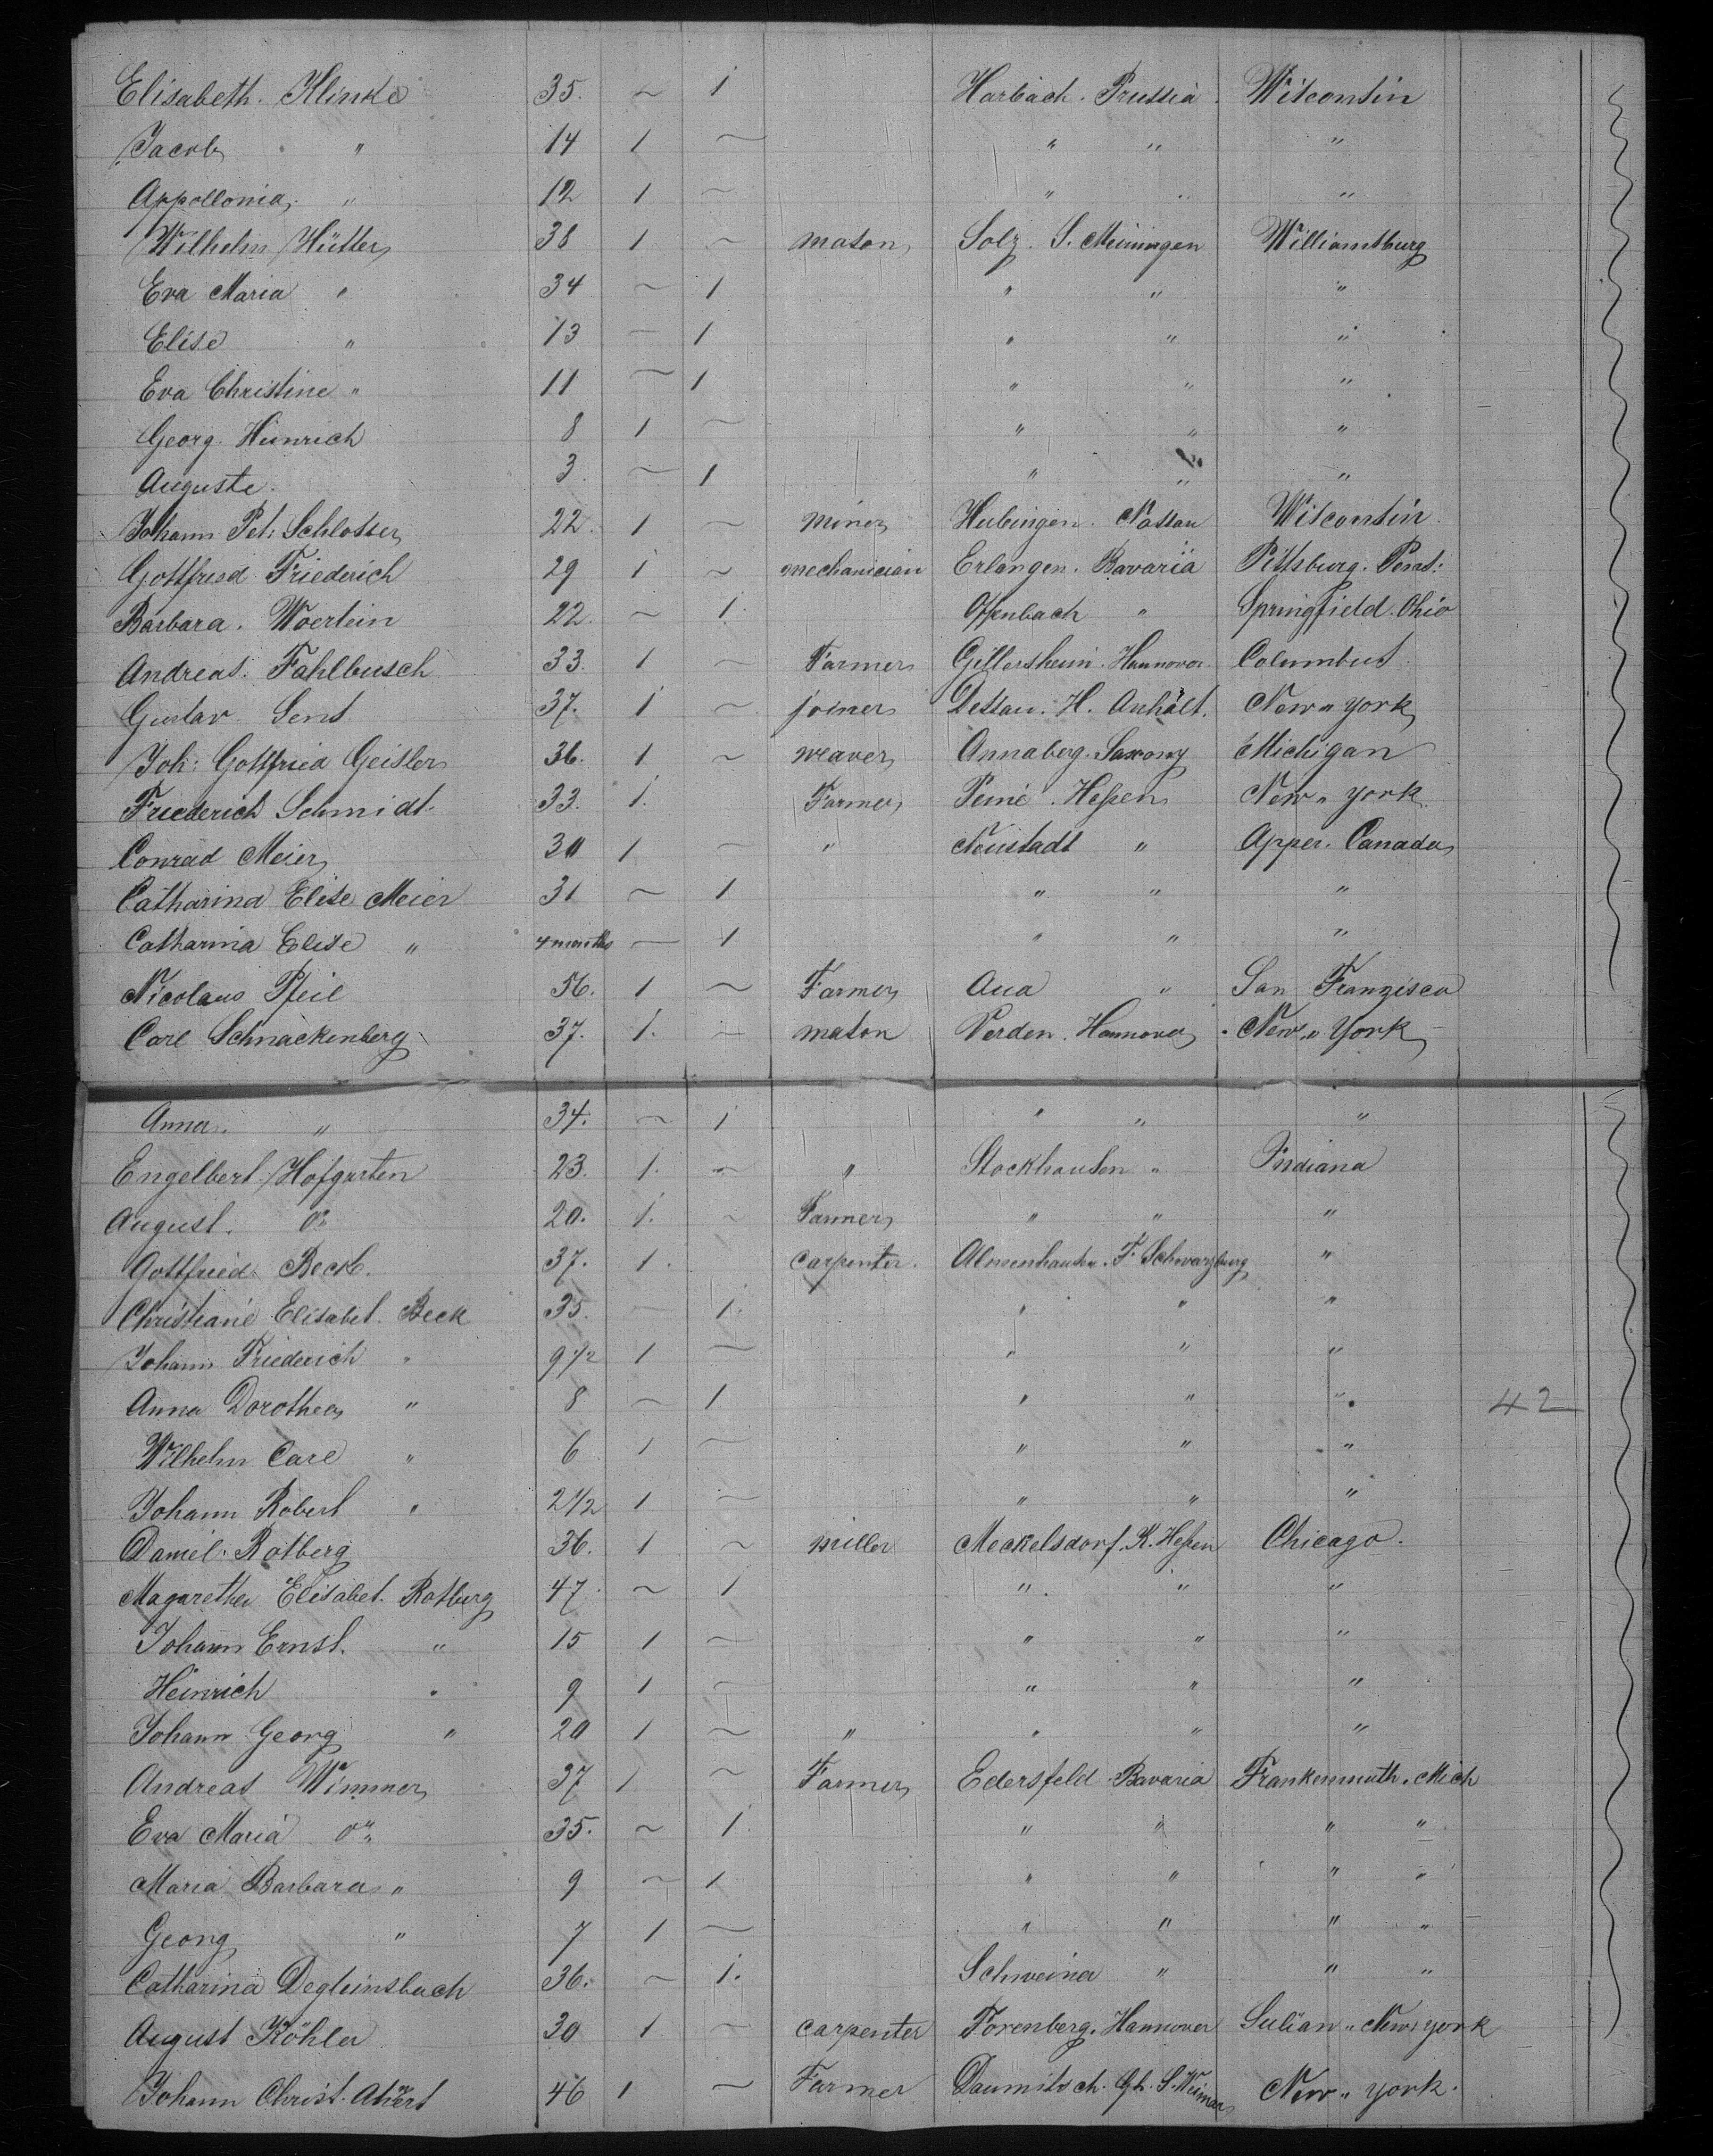 Elisabeth. Klinke 35. ~ 1 Harbach. Prussia. Wisconsin
Jacob " 14 1 ~ " " "
Appollonia " 12 1 ~ " " "
Wilhelm Hütter 38 1 ~ mason Solz. S. Meiningen Williamsburg
Eva Maria " 34 ~ 1 " " "
Elise " 13 ~ 1 " " "
Eva Christine " 11 ~ 1 " " "
Georg Heinrich 8 1 ~ " " "
Auguste. 3. ~ 1 " " "
Johann Pet. Schlosser 22. 1 ~ miner Hubingen. Nassau Wisconsin.
Gottfried Friederich 29 1 ~ mechanician Erlangen. Bavaria Pittsburg. Pens:
Barbara. Woerlein 22. ~ 1. Offenbach " Springfield. Ohio
Andreas. Fahlbusch 33. 1 ~ Farmer Gillersheim. Hannover. Columbus.
Gustav Sens 37. 1 ~ joiner Dessau. H. Anhalt. New " york
Joh: Gottfried Geisler 36. 1 ~ weaver Annaberg. Saxony Michigan
Friederich Schmidt. 33. 1. Farmer Peine. Hessen New " york.
Conrad Meier 30 1 ~ " Neustadt " Apper. Canada
Catharina Elise Meier 31 ~ 1 " " "
Catharina Elise " 4 months ~ 1 " " "
Nicolaus Pfeil 56. 1 ~ Farmer Aua " San Franzisco
Carl Schnackenberg 37. 1. ~ mason Verden. Hannover. New " York
Anna. " 34. ~ 1 " " "
Engelbert Hofgarten 23. 1. ~ " Stockhausen " Indiana
August. do 20. 1. ~ Farmer " " "
Gottfried Beck. 37. 1. carpenter. Almenhausen. F. Schwarzburg "
Christiane Elisabet. Beck 35. ~ 1. " " "
Johann Friederich " 9 1/2 1 ~ " " "
Anna Dorothea " 8 ~ 1 " " " 42
Wilhelm Carl " 6 1 ~ " " "
Johann Robert " 2 1/2 1 ~ " " "
Daniel. Rotberg 36. 1 ~ miller Meckelsdorf. K. Hessen Chicago.
Magarethe Elisabet. Rotburg 47. ~ 1 " " "
Johann Ernst. " 15 1 ~ " " "
Heinrich " 9 1 ~ " " "
Johann Georg " 20 1 ~ " " " "
Andreas Wimmer 37 1 ~ Farmer Edersfeld Bavaria Frankenmuth. Mich
Eva Maria do 35. ~ 1. " " " "
Maria Barbara " 9 ~ 1 " " " "
Georg " 7 1 ~ " " " "
Catharina Degleinsbach 36. ~ 1. Schweina " " "
August Köhler 30 1 ~ carpenter Forenberg. Hannover Sulian " New york
Johann Christ. 46 1 ~ Farmer Daumitsch. Gh. S. Weimar New " york.